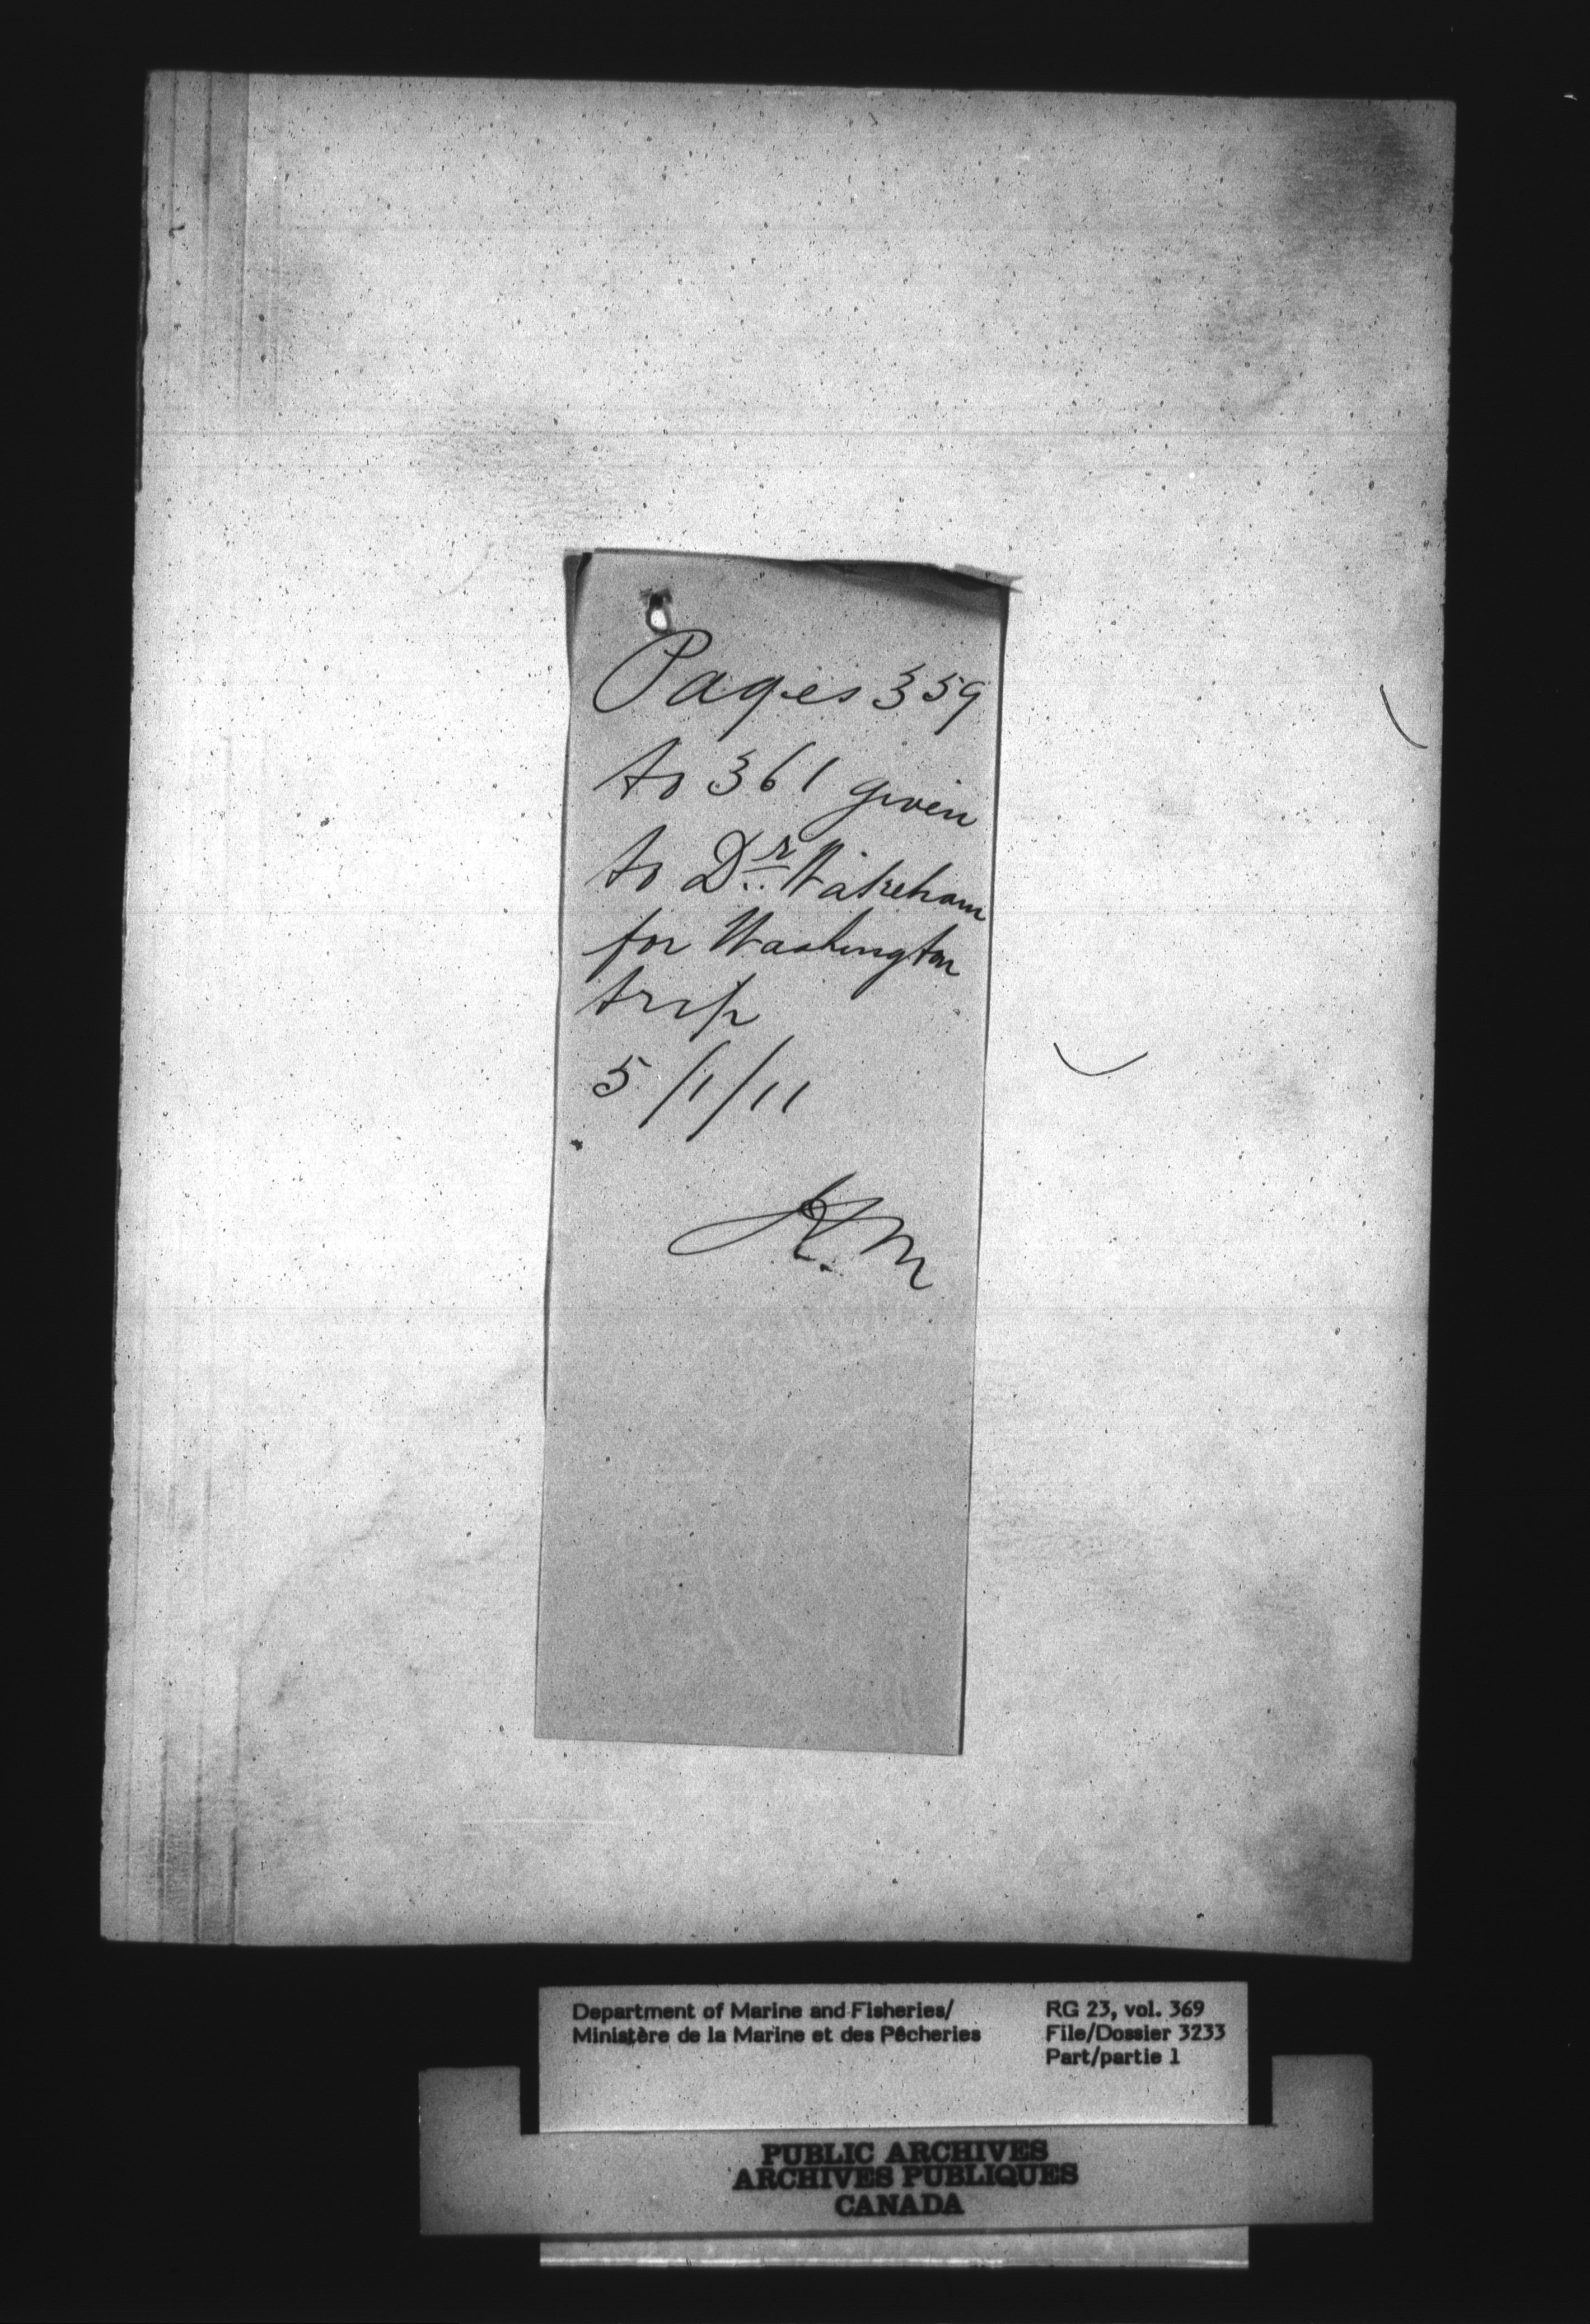 Pages 359
to 361 given
to Dr. Wakeham
for Washington
trip
5/1/11
K.M
Department of Marine and Fisheries/
Ministère de la Marine et des Pêcheries
RG 23, vol. 369
File/Dossier 3233
Part/partie 1
PUBLIC ARCHIVES
ARCHIVES PUBLIQUES
CANADA